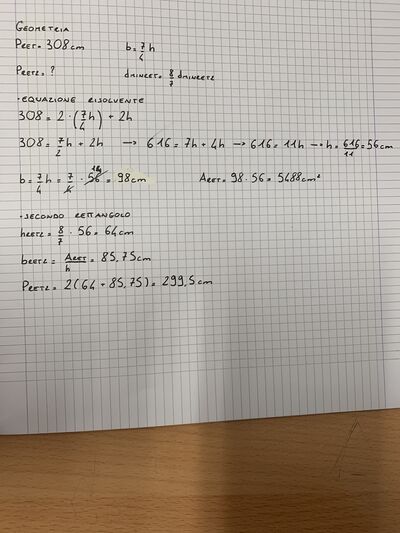 GEOMETRIA
PRET = 308 cm b = 7/4 h
PRET2 = ? dMINRET = 8/7 dMINRET2
• EQUAZIONE RISOLVENTE
308 = 2 · (7/4 h) + 2h
308 = 7/2 h + 2h → 616 = 7h + 4h → 616 = 11h → h = 616/11 = 56 cm
b = 7/4 h = 7/4 · 56 14 = 98 cm ARET = 98 · 56 = 5488 cm²
• SECONDO RETTANGOLO
hRET2 = 8/7 · 56 = 64 cm
bRET2 = ARET/h = 85,75 cm
PRET2 = 2(64 + 85,75) = 299,5 cm